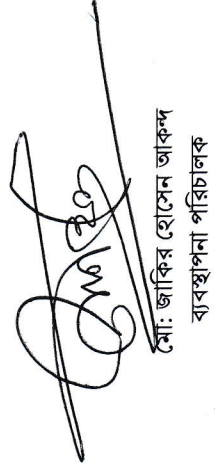 মো: জাকির হোসেন আকন্দ
ব্যবস্থাপনা পরিচালক